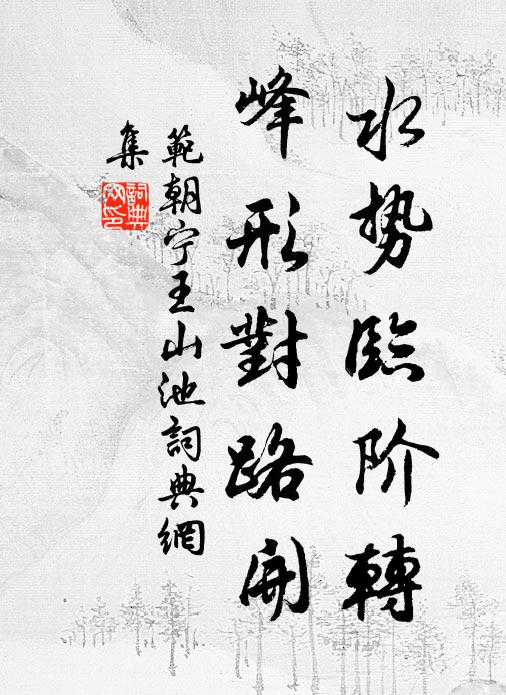 水势臨阶轉
峰形對路開
範朝宁王山池詞典網
集
詞典網印